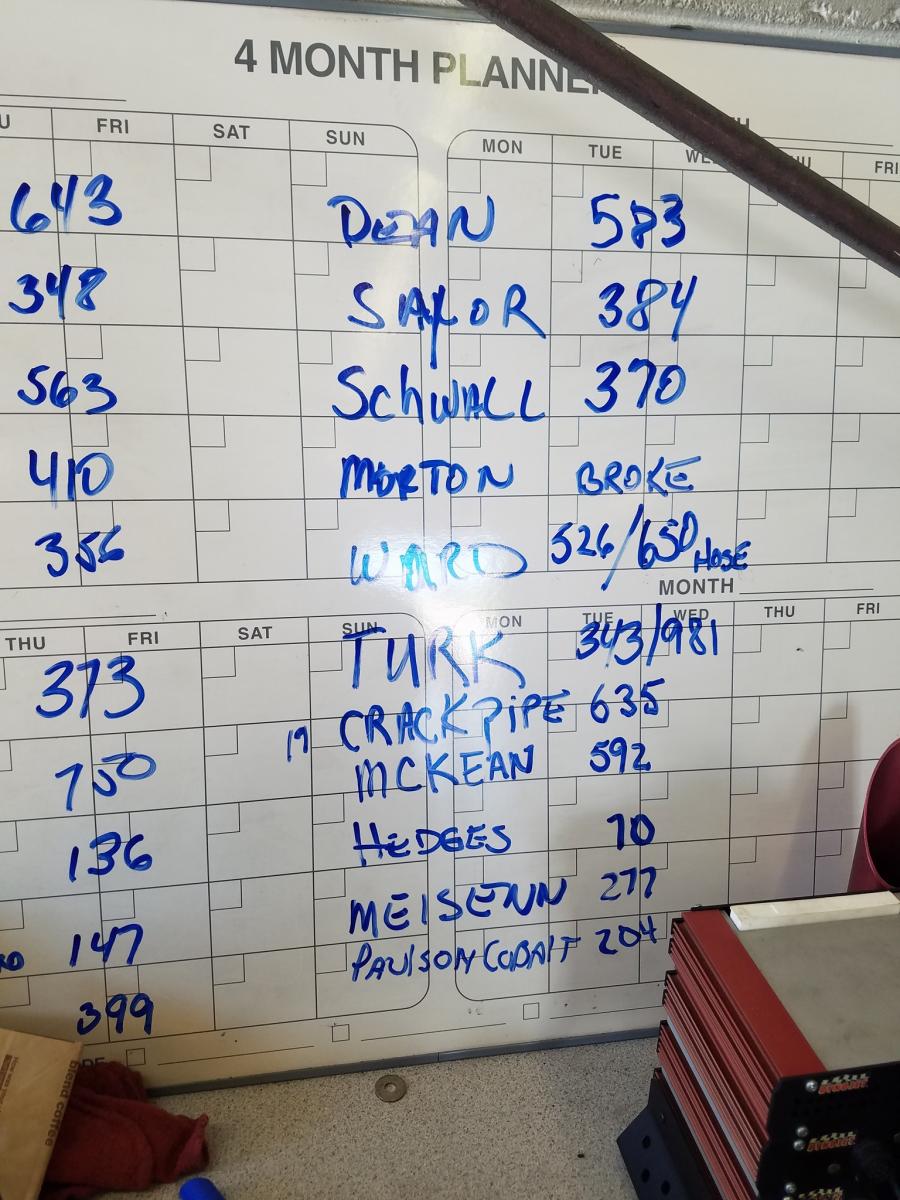 4 MONTH PLANNE
FRI SAT SUN MON TUE FRI
643 DEAN 583
348 SAYLOR 384
563 SchWALL 370
410 MORTON BROKE
356 WARD 526/650 HOSE
MONTH
THU FRI SAT SUN MON TUE WED THU FRI
373 TURK 343/981
CRACKPIPE 635
750 19 MCKEAN 592
136 HEDGES 70
147 MEISENN 277
399 PAULSON COBALT 204
blend coffee
DYNOJET
DYNOJET